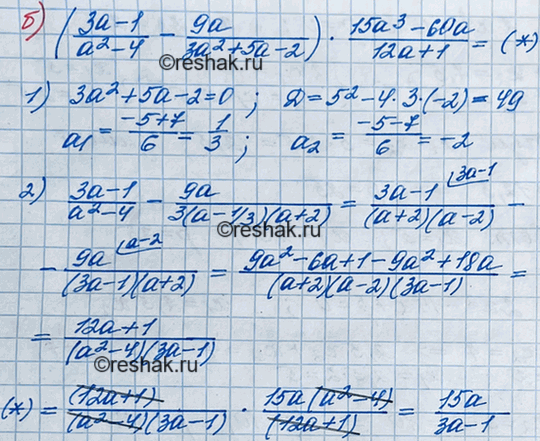 б) ( (3a-1)/(a²-4) - 9a/(3a²+5a-2) ) · (15a³-60a)/(12a+1) = (*)
©reshak.ru
1) 3a²+5a-2=0 ; D=5²-4·3·(-2)=49
a₁ = (-5+7)/6 = 1/3 ; a₂ = (-5-7)/6 = -2
2) (3a-1)/(a²-4) - 9a/(3(a-1/3)(a+2)) = (3a-1)/((a+2)(a-2)) 3a-1 -
©reshak.ru
- 9a/((3a-1)(a+2)) a-2 = (9a²-6a+1-9a²+18a)/((a+2)(a-2)(3a-1)) =
= (12a+1)/((a²-4)(3a-1))
©reshak.ru
(*) = (12a+1)/((a²-4)(3a-1)) · 15a(a²-4)/(12a+1) = 15a/(3a-1)